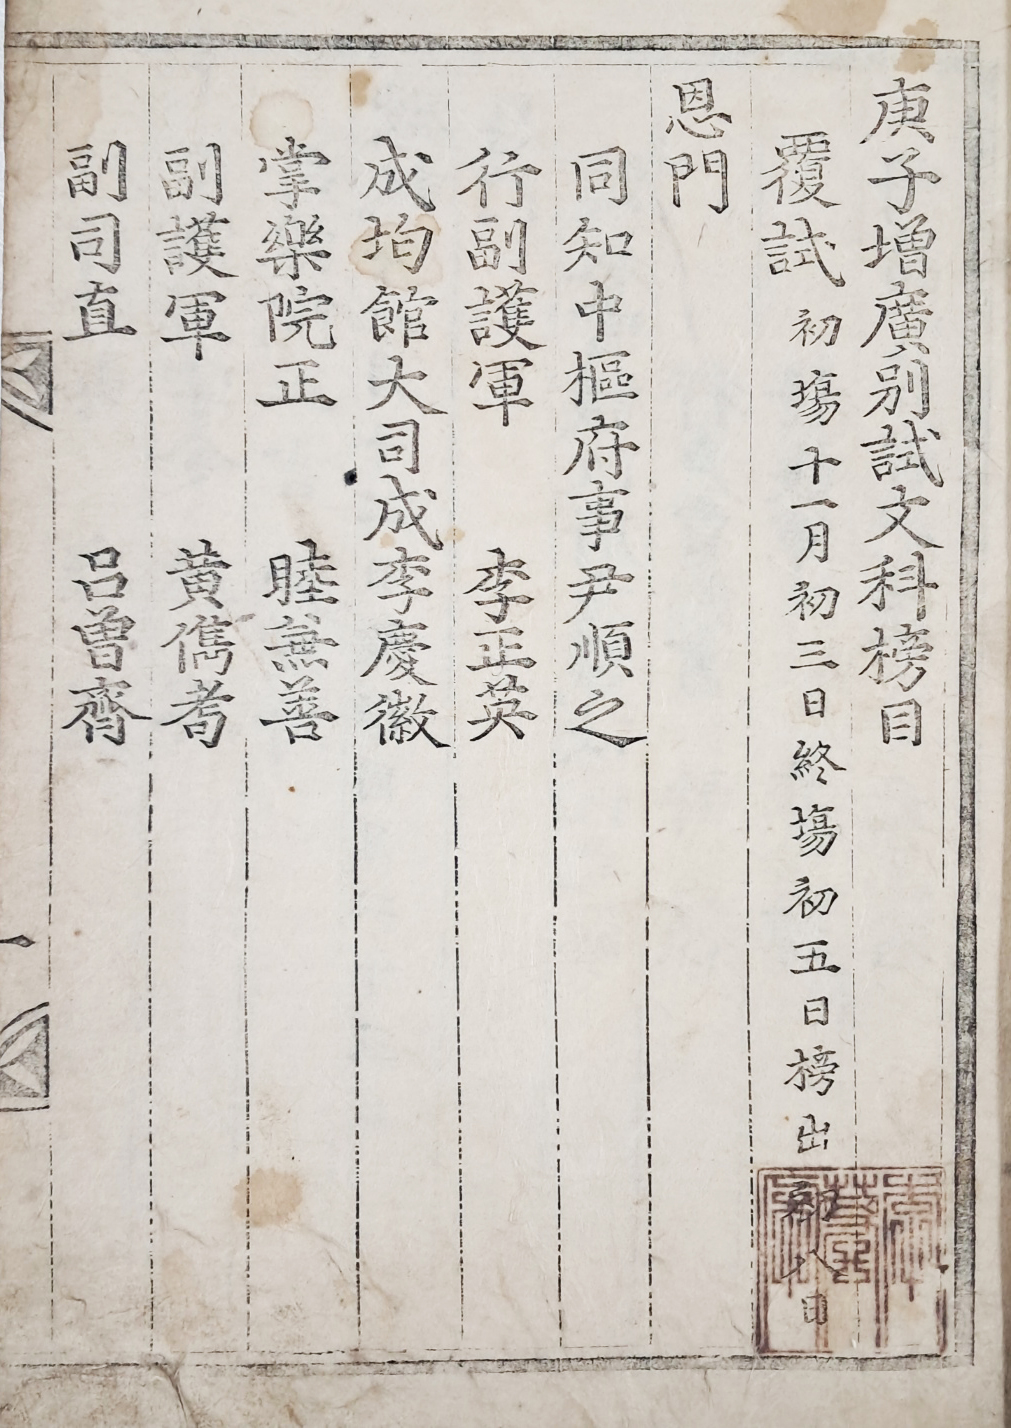 庚子增廣別試文科榜目
覆試 初場十一月初三日終場初五日榜出初八日
恩門
同知中樞府事尹順之
行副護軍 李正英
成均館大司成李慶徽
掌樂院正 睦兼善
副護軍 黃儁耇
副司直 呂曾齊
一